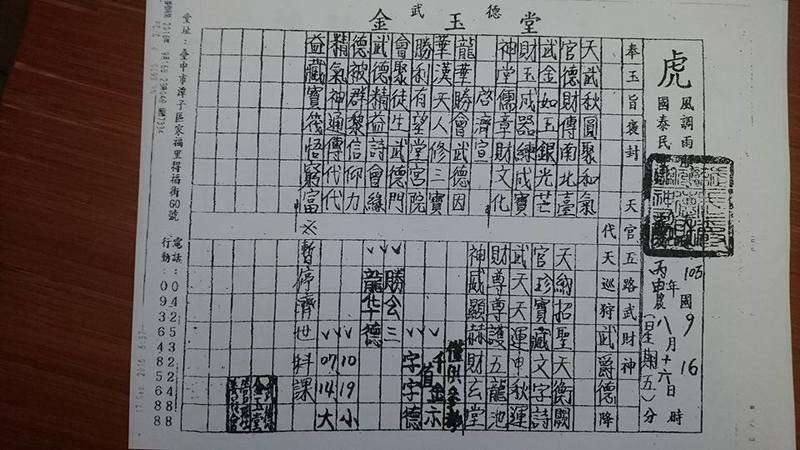 金玉堂
武德
虎
風調雨
國泰民
105年國 9 16
丙申年農八月十六日時
(星期五)分
奉玉旨褒封 天官五路武財神
代天巡狩武爵德降
天武秋圓聚和氣
官德財傳南北臺
武金如玉銀光芒
財玉成器練成寶
神堂儒章財文化
啓濟宣
龍華勝會武德因
華漢天人修三寶
勝利有望堂宮院
會聚徒生武德門
武德精益詩會緣
德被群黎信仰力
精氣神通傳代代
益藏寶筏悟窮富
天招聖天衡闕
官珍寶藏文字詩
武天天運申秋運
財尊尊護五龍池
神威顯赫財玄堂
僅供參考
千金亦
值
字字德
勝会三
龍华德
10 19 小
07 14 大
※暫停濟世科課
金玉堂
堂址:臺中市潭子區家福里得福街60號
電話:0425322488
行動:0936485688